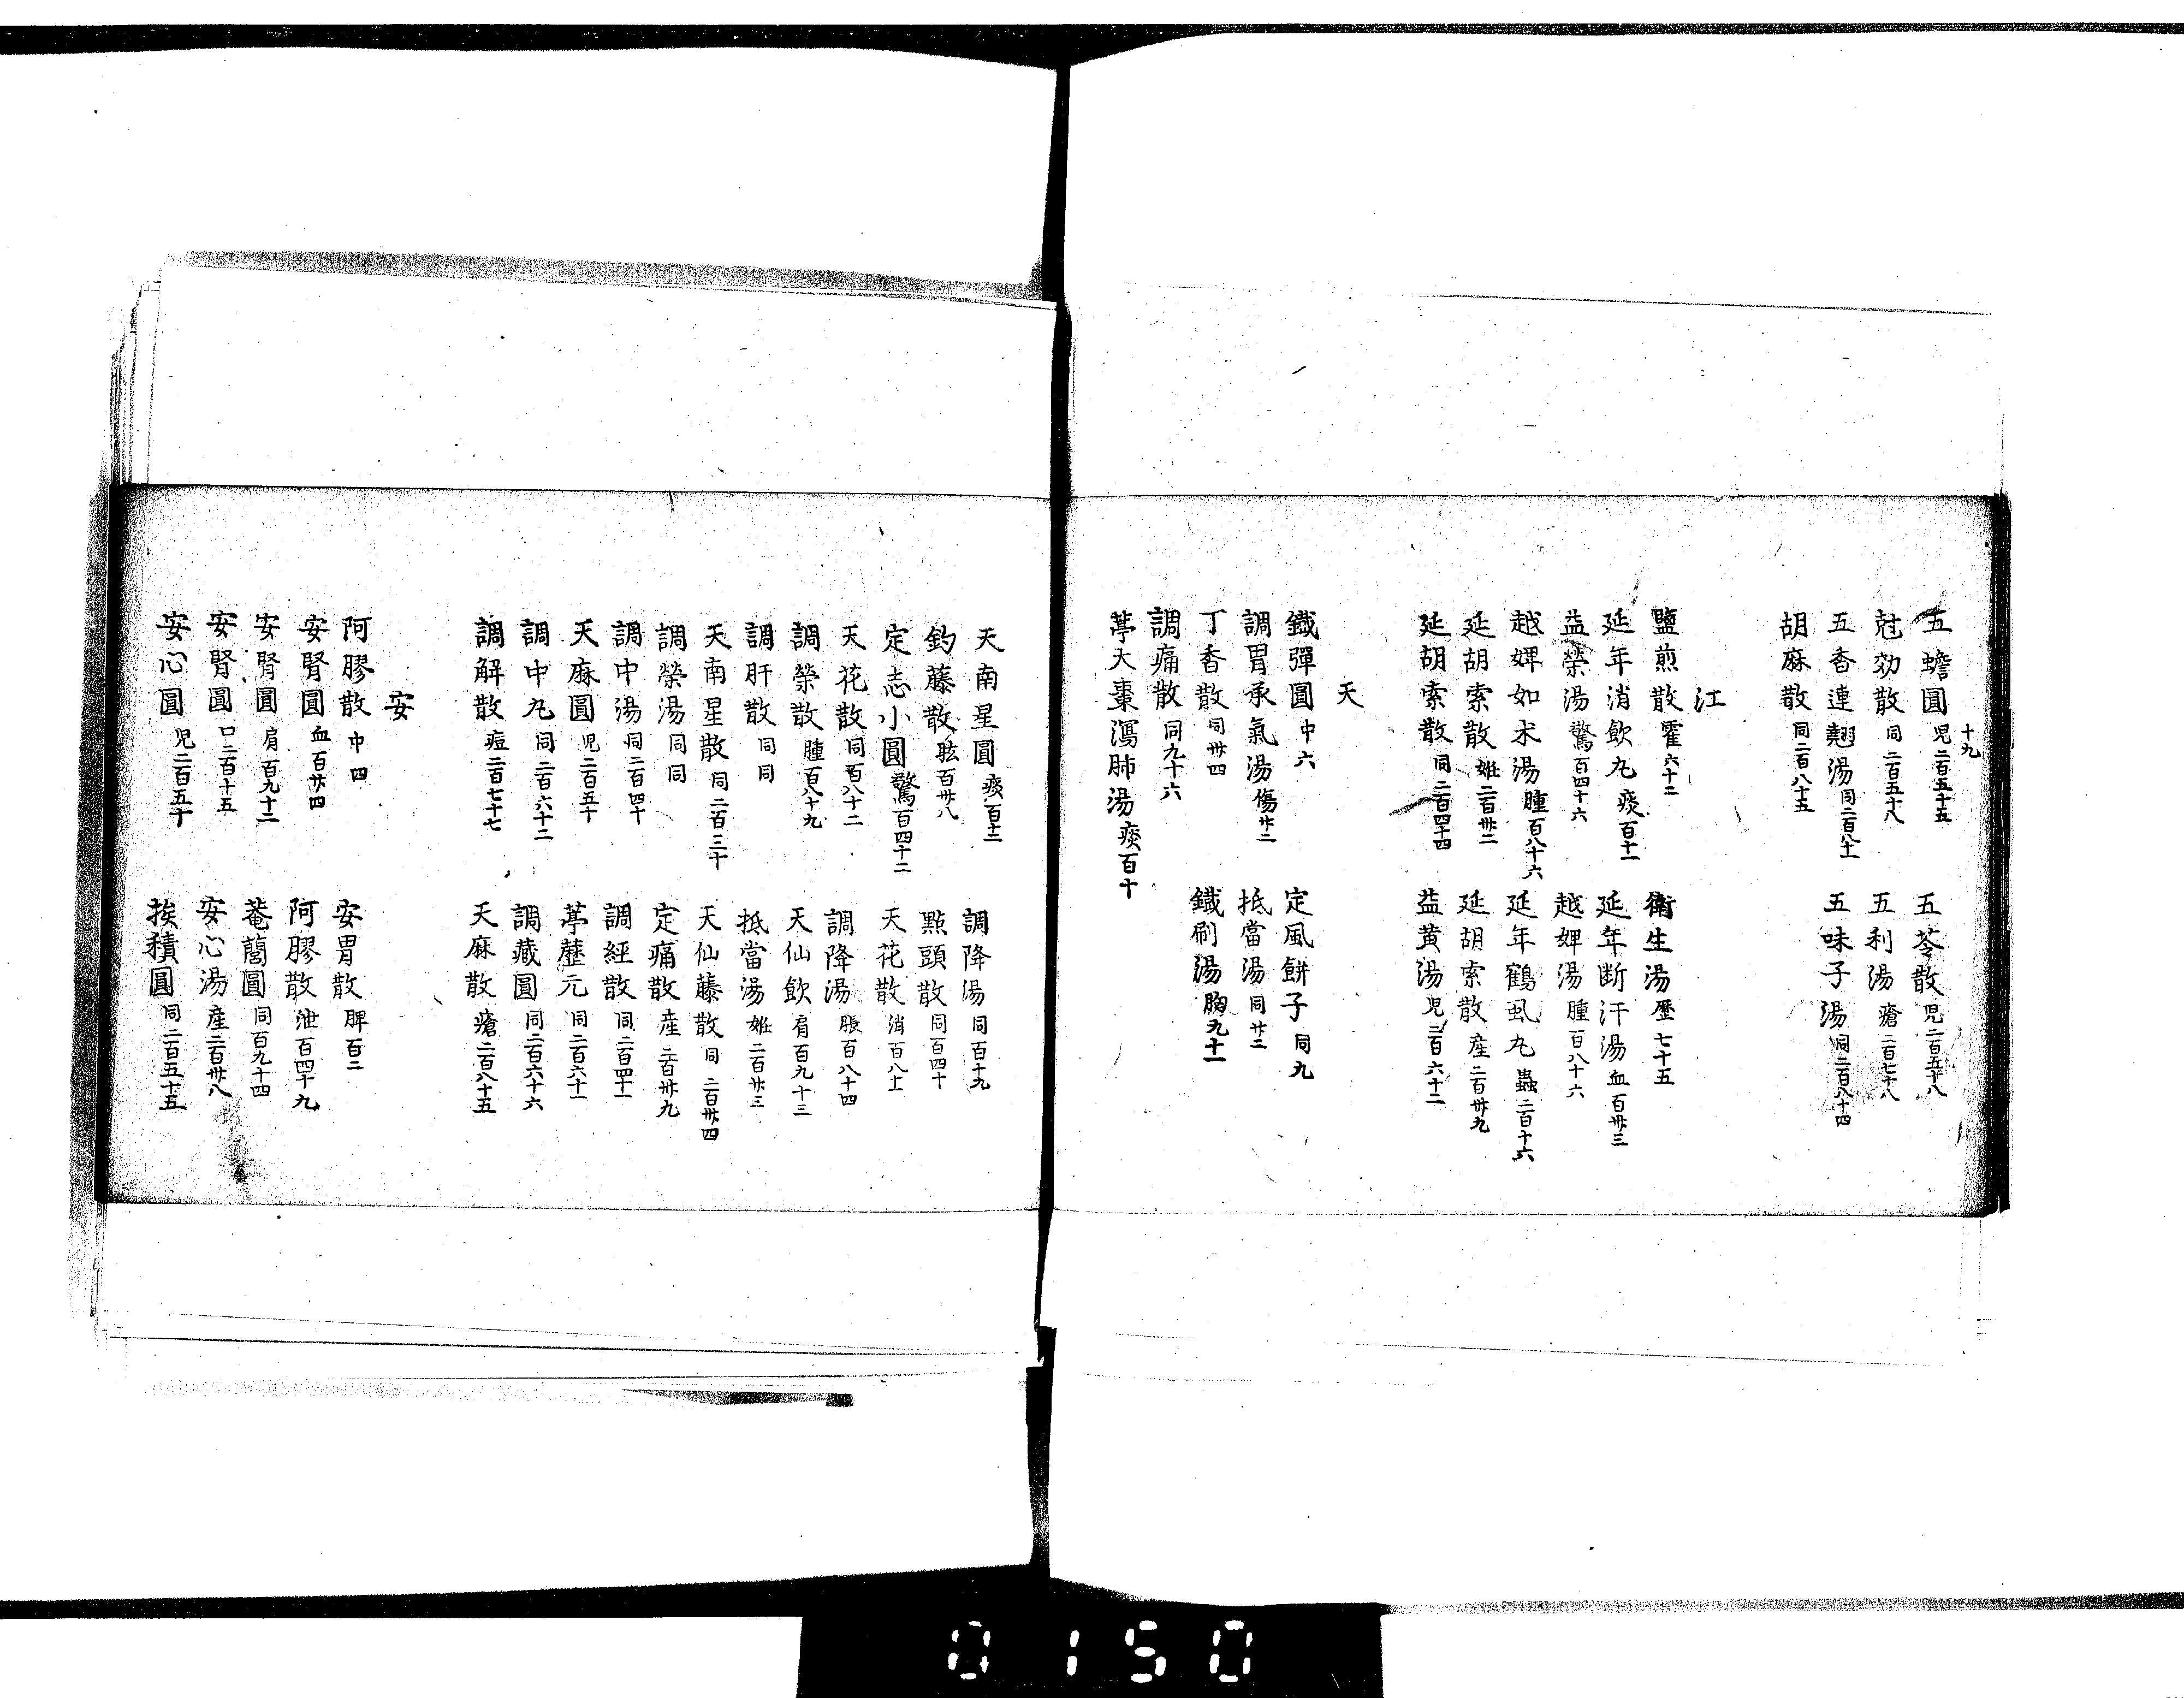 十九
五蟾圓 児二百五十五 五苓散 児二百五十八
尅効散 同二百五十八 五利湯 瘡二百七十八
五香連翹湯 同二百八十 五味子湯 同二百八十四
胡麻散 同二百八十五
江
鹽煎散 霍六十二 衛生湯 歷七十五
延年消飲丸 痰百十一 延年断汗湯 血百卅三
益榮湯 驚百四十六 越婢湯 腫百八十六
越婢如朮湯 腫百八十六 延年鶴虱丸 蟲二百十六
延胡索散 姙二百卅二 延胡索散 産二百卅九
延胡索散 同二百四十四 益黄湯 児二百六十二
天
鐵彈圓 中六 定風餅子 同九
調胃承氣湯 傷廿二 抵當湯 同廿二
丁香散 同卅四 鐵刷湯 胸九十一
調痛散 同九十六
葶大棗瀉肺湯 痰百十
天南星圓 痰百十二 調降湯 同百十九
釣藤散 眩百卅八 點頭散 同百四十
定志小圓 驚百四十二 天花散 消百八十
天花散 同百八十二 調降湯 脹百八十四
調榮散 腫百八十九 天仙飲 肩百九十三
調肝散 同同 抵當湯 姙二百廿三
天南星散 同二百三十 天仙藤散 同二百卅四
調榮湯 同同 定痛散 産二百卅九
調中湯 同二百四十 調經散 同二百四十一
天麻圓 児二百五十 葶藶元 同二百六十一
調中丸 同二百六十二 調藏圓 同二百六十六
調解散 痘二百七十七 天麻散 瘡二百八十五
安
阿膠散 中四 安胃散 脾百二
安腎圓 血百廿四 阿膠散 泄百四十九
安腎圓 肩百九十三 菴䕡圓 同百九十四
安腎圓 口二百十五 安心湯 産二百卅八
安心圓 児二百五十 挨積圓 同二百五十五
0150